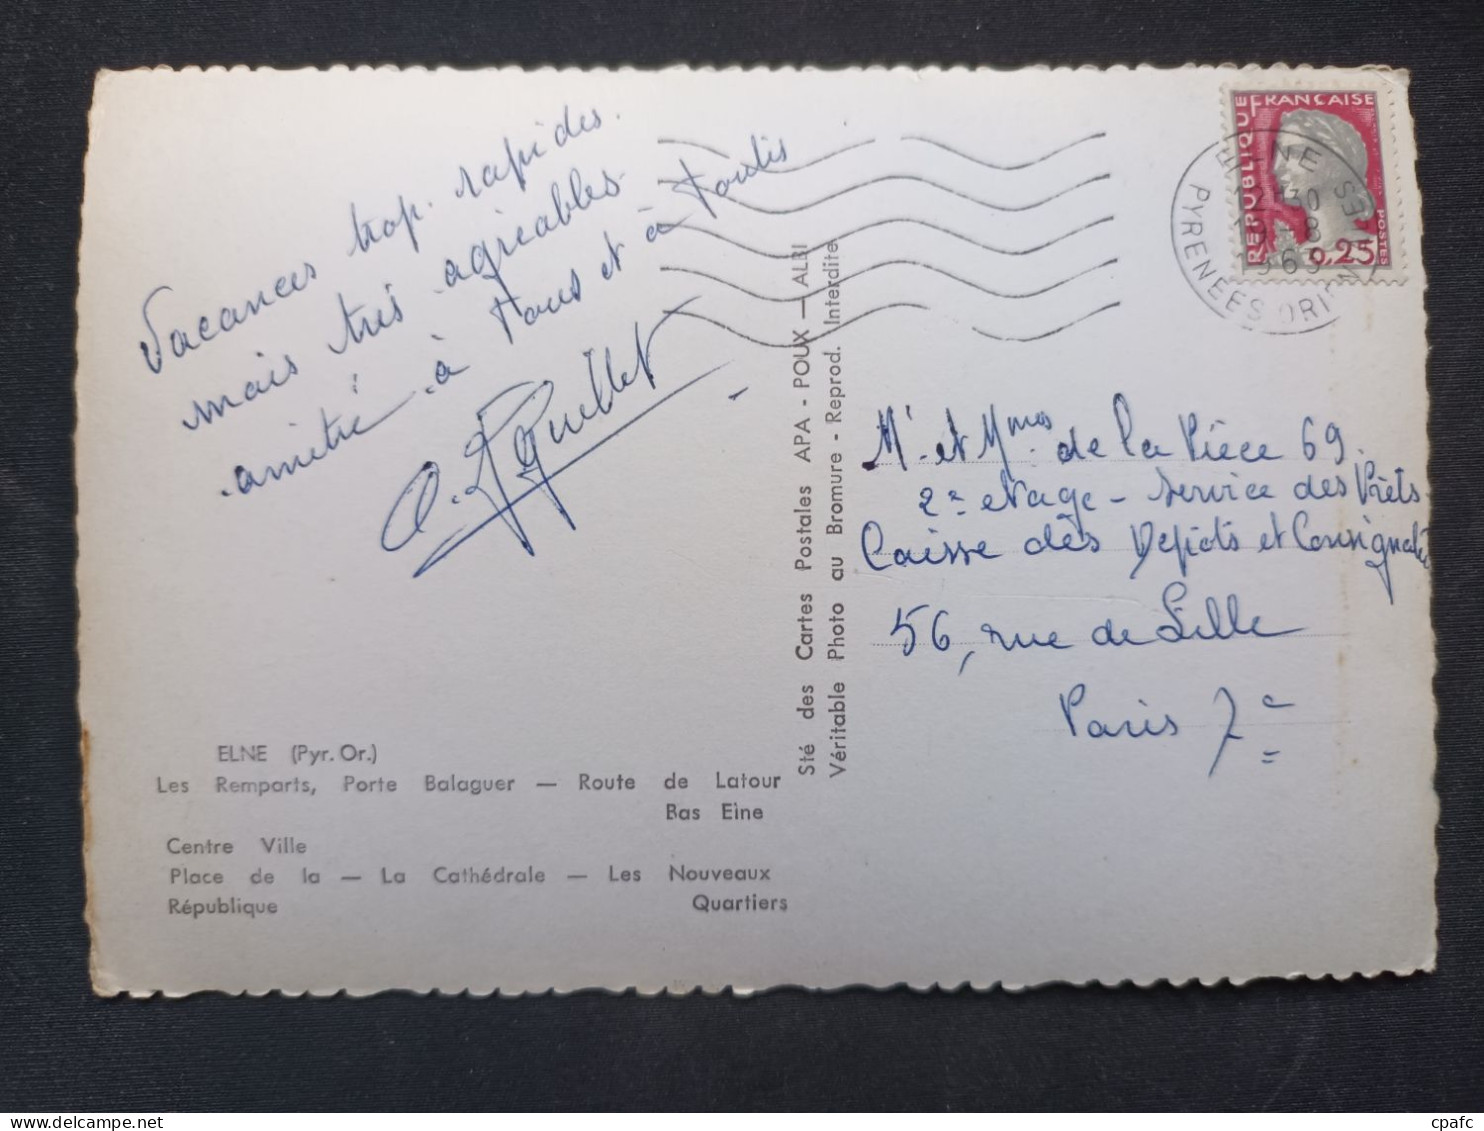 Vacances trop rapides.
mais très agréables
amitié à tous et à toutes
ELNE (Pyr. Or.)
Les Remparts, Porte Balaguer — Route de Latour
Bas Elne
Centre Ville
Place de la — La Cathédrale — Les Nouveaux
République Quartiers
Sté des Cartes Postales APA - POUX — ALBI
Véritable Photo au Bromure - Reprod. Interdite
RÉPUBLIQUE FRANÇAISE
POSTES
0,25
ELNE
12H30
-8
PYRENEES ORIENTALES
Mr et Mmes de la Pièce 69.
2e etage - Service des Prêts
Caisse des Dépôts et Consignat
56, rue de Lille
Paris 7e
cpafc